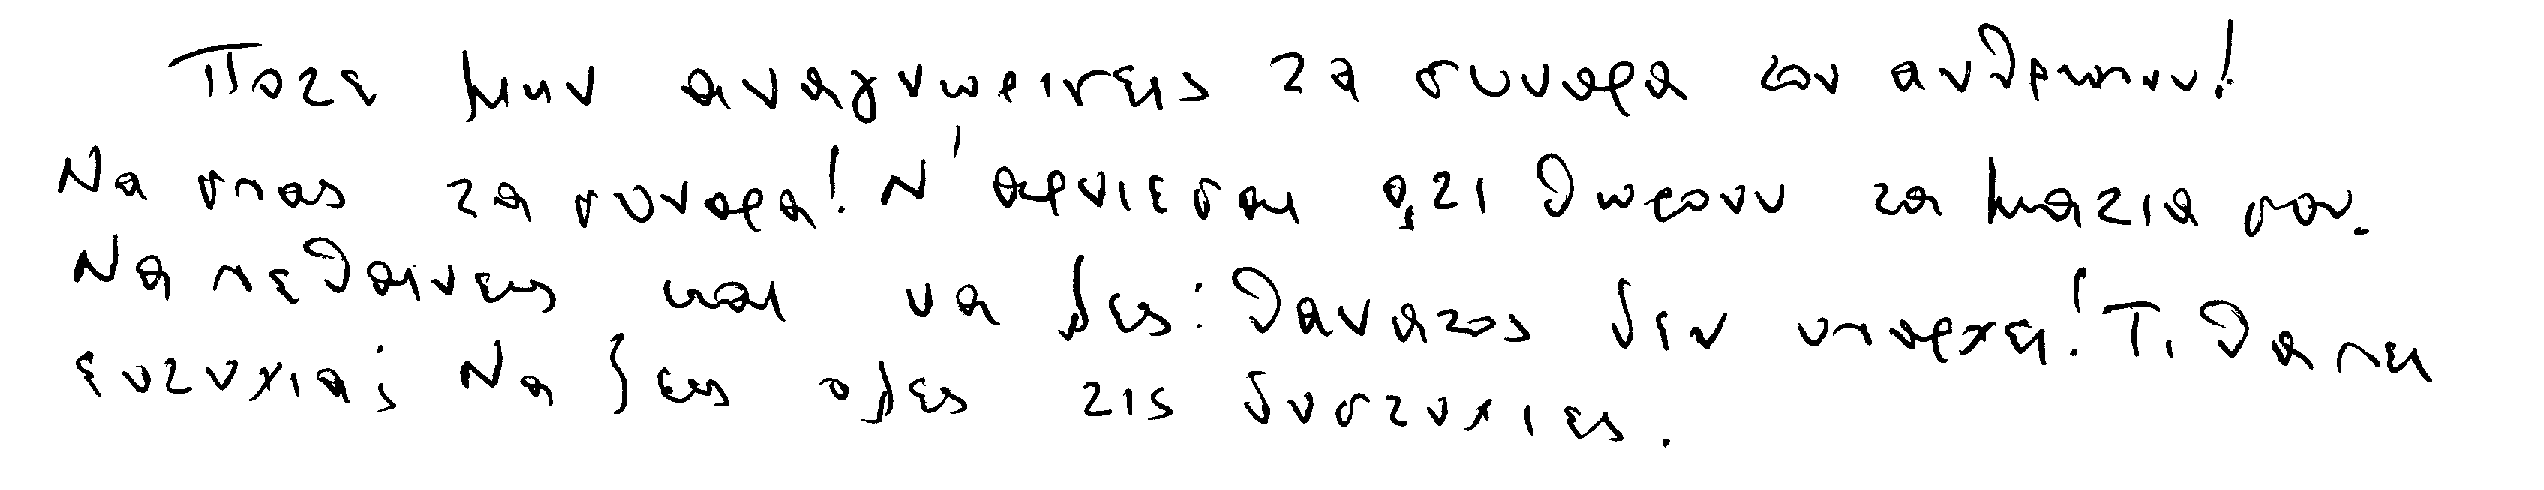 Ποτε μην αναγνωρισεις τα συνορα του ανθρωπου!
Να σπας τα συνορα! Ν' αρνιεσαι ο,τι θωρουν τα ματια σου.
Να πεθαινεις και να λες: θανατος δεν υπαρχει! Τι θα πει
ευτυχια; Να ζεις ολες τις δυστυχιες.